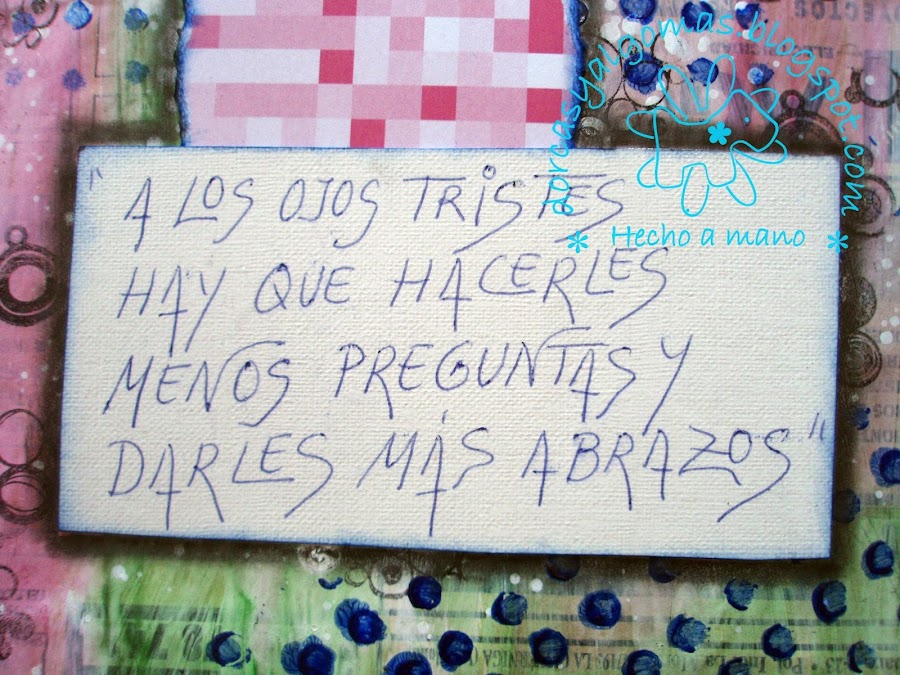 * Hecho a mano *
"A LOS OJOS TRISTES
HAY QUE HACERLES
MENOS PREGUNTAS Y
DARLES MÁS ABRAZOS"